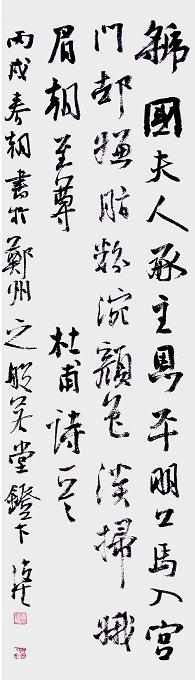 虢國夫人承主恩平明上馬入宮
門却嫌脂粉涴顏色淡掃蛾
眉朝至尊 杜甫詩一首
丙戌春朝書於鄭州之般若堂鐙下